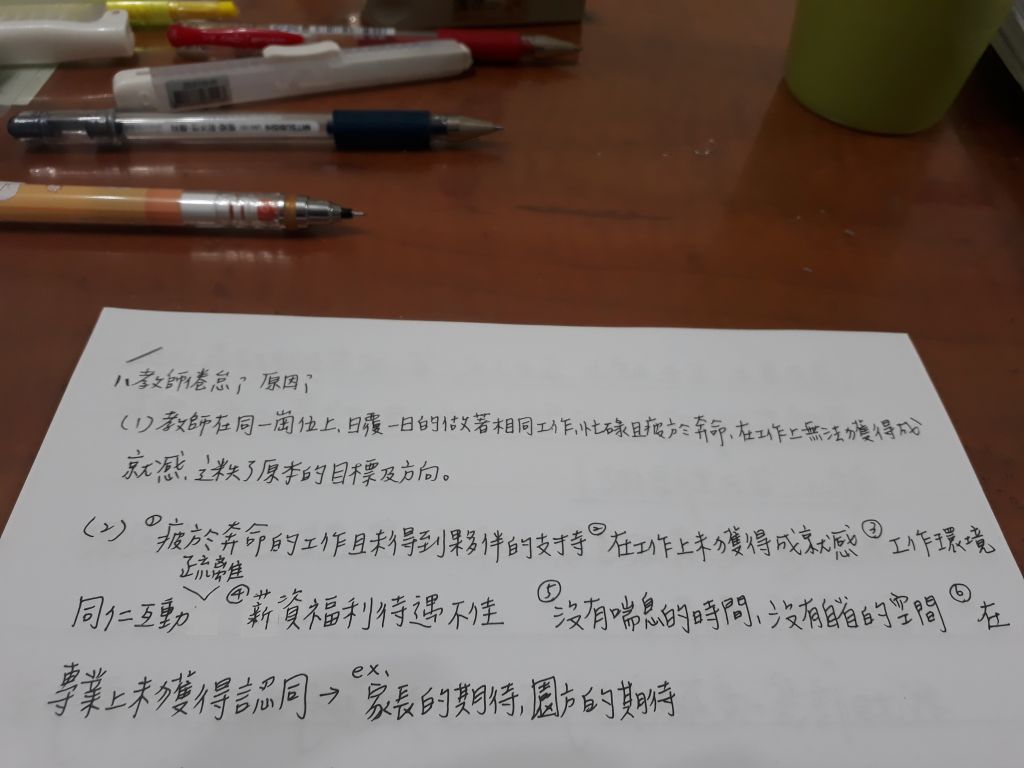 MITSUBISHI
1、教師倦怠; 原因;
(1)教師在同一崗位上,日覆一日的做著相同工作,忙碌且疲於奔命,在工作上無法獲得成
就感,迷失了原本的目標及方向。
(2) ①疲於奔命的工作且未得到夥伴的支持②在工作上未獲得成就感③工作環境
疏離
同仁互動 ④薪資福利待遇不佳 ⑤沒有喘息的時間,沒有自省的空間⑥在
專業上未獲得認同→ ex、家長的期待,園方的期待